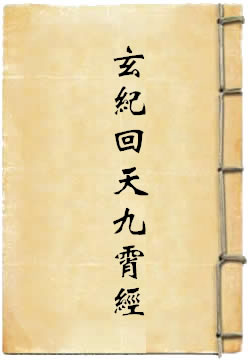 玄紀回天九霄經